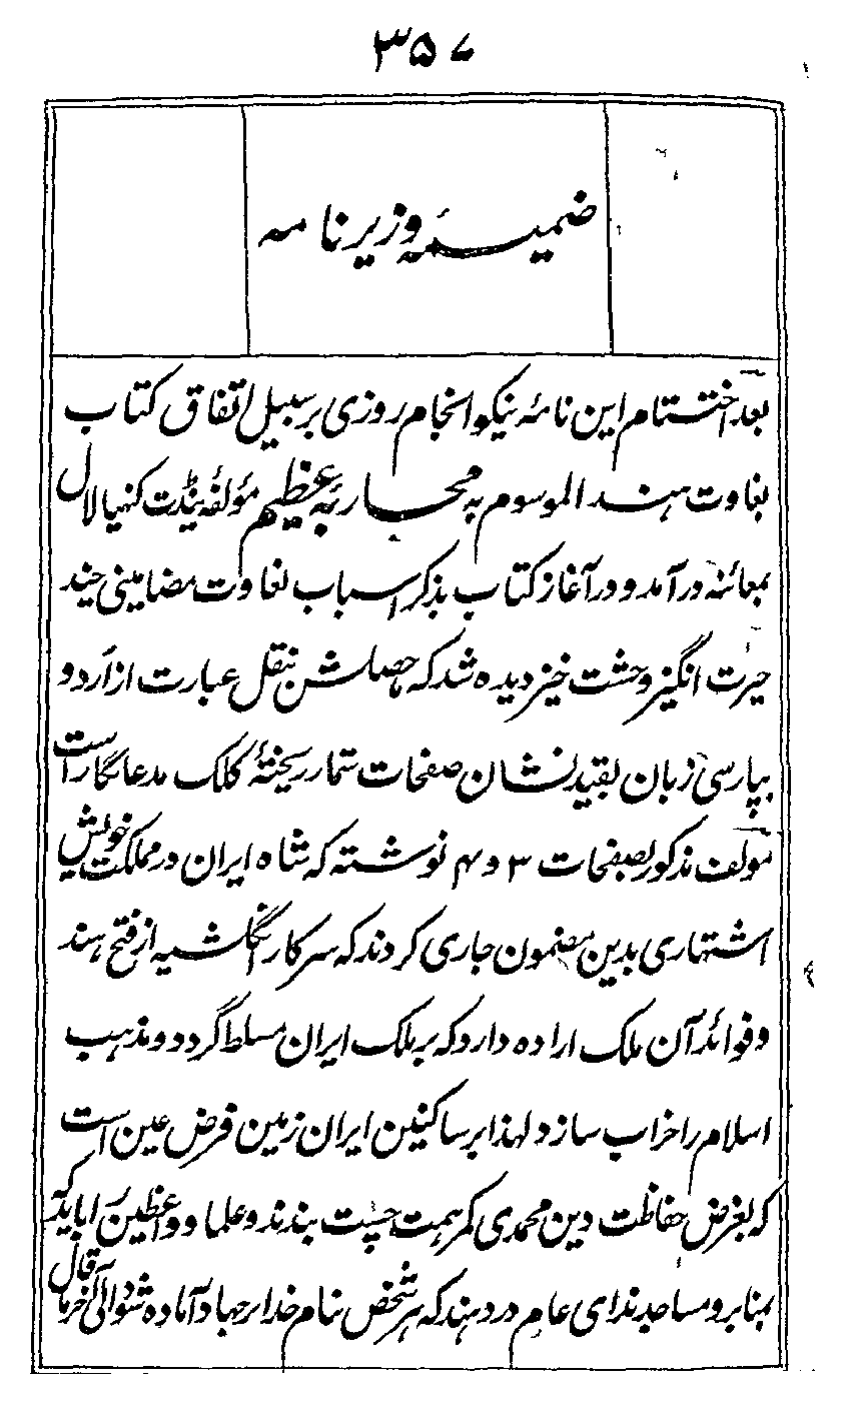 ۳۵۷
ضمیمۀ وزیر نامه
بعد اختتام این نامۀ نیکو انجام روزی بر سبیل اتفاق کتاب
بغاوت هند الموسوم به محاربۀ عظیم مؤلفۀ پنڈت کنهیا لال
بمعائنه در آمد و در آغاز کتاب بذکر اسباب بغاوت مضامینی چند
حیرت انگیز وحشت خیز دیده شد که حاصلش نقل عبارت از اردو
بپارسی زبان بقید نشان صفحات شمار ریختۀ کلک مدعا نگار است
مولف مذکور بصفحات ۳ و ۴ نوشته که شاه ایران در مملکت خویش
اشتهاری بدین مضمون جاری کردند که سرکار انگلشیه از فتح هند
و فوائد آن ملک اراده دارد که بر ملک ایران مسلط گردد و مذهب
اسلام را خراب سازد لهذا بر ساکنین ایران زمین فرض عین است
که بغرض حفاظت دین محمدی کمر همت چست بندند و علما و واعظین را باید که
بمنابر و مساجد ندای عام در دهند که هر شخص بنام خدا بر جهاد آماده شود الی آخر ما قال